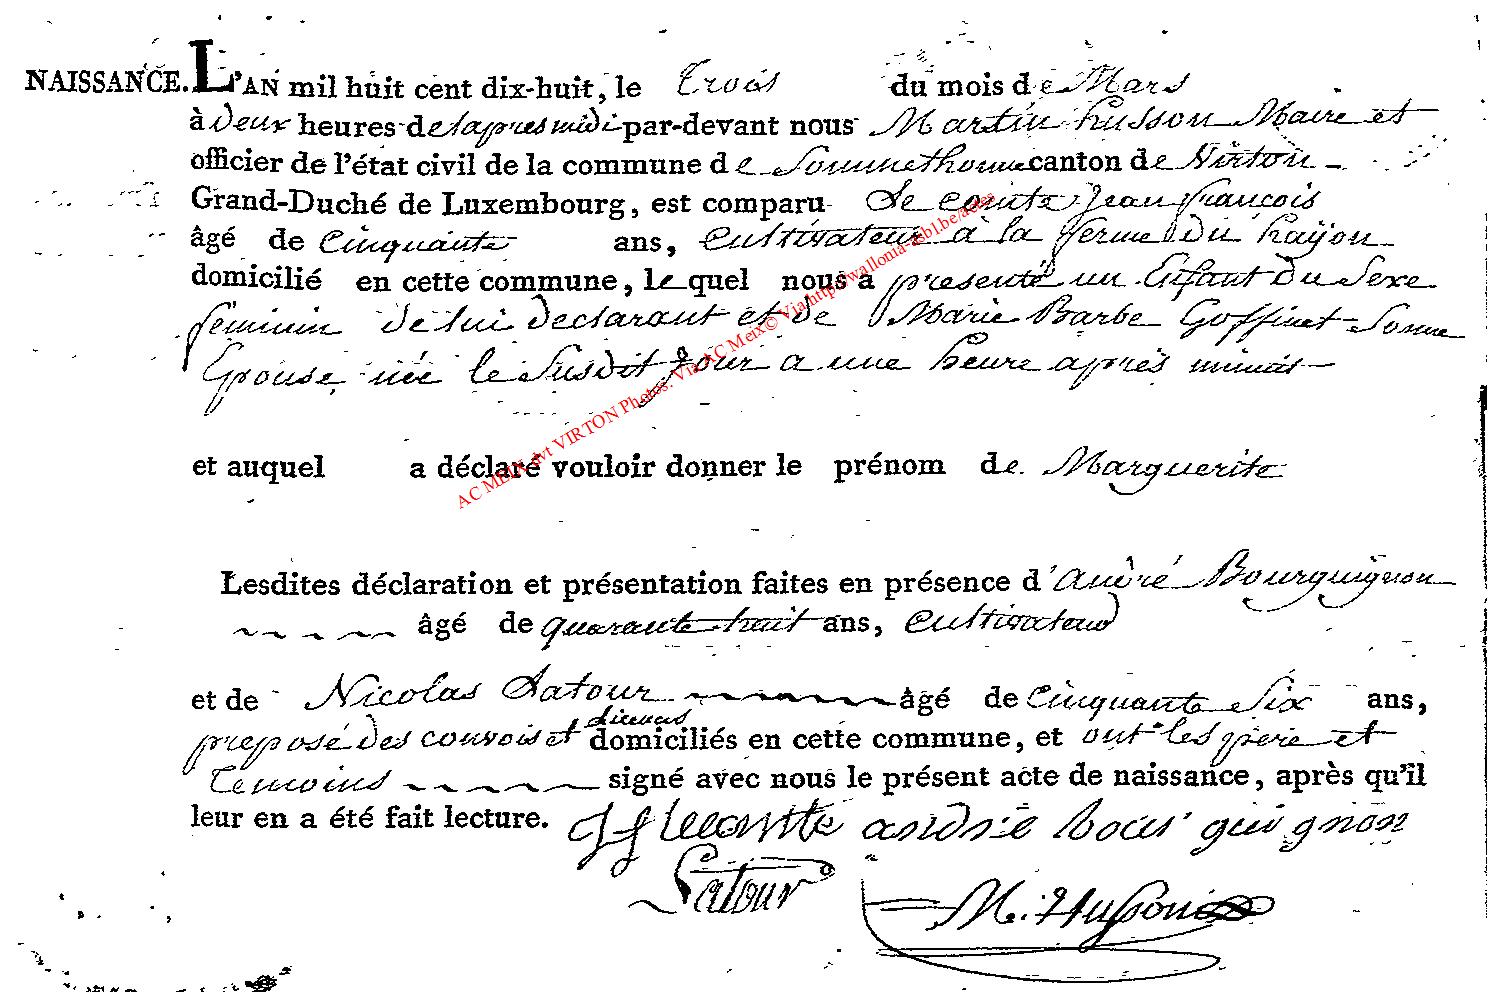 NAISSANCE. L'AN mil huit cent dix-huit, le trois du mois de Mars
à deux heures de lapres midi par-devant nous Martin husson Maire et
officier de l'état civil de la commune de Sommethonne canton de Virton
Grand-Duché de Luxembourg, est comparu Le comte Jean françois
âgé de Cinquante ans, Cultivateur à la ferme du hayon
domicilié en cette commune, lequel nous a presenté un Enfant du Sexe
feminin de lui declarant et de Marie Barbe Goffinet Sonne
Epouse née le Susdit jour a une heure après minuit
et auquel a déclaré vouloir donner le prénom de Marguerite
Lesdites déclaration et présentation faites en présence d'André Bourguignon
âgé de quarante huit ans, Cultivateur
et de Nicolas Latour âgé de Cinquante Six ans,
licences
preposé des convois et domiciliés en cette commune, et ont les pere et
temoins signé avec nous le présent acte de naissance, après qu'il
leur en a été fait lecture. JF lecomte andré bour guignon
Latour M. Husson
AC MEIX dvt VIRTON Photos: Via AC Meix © Via http://wallonia-asbl.be/actes